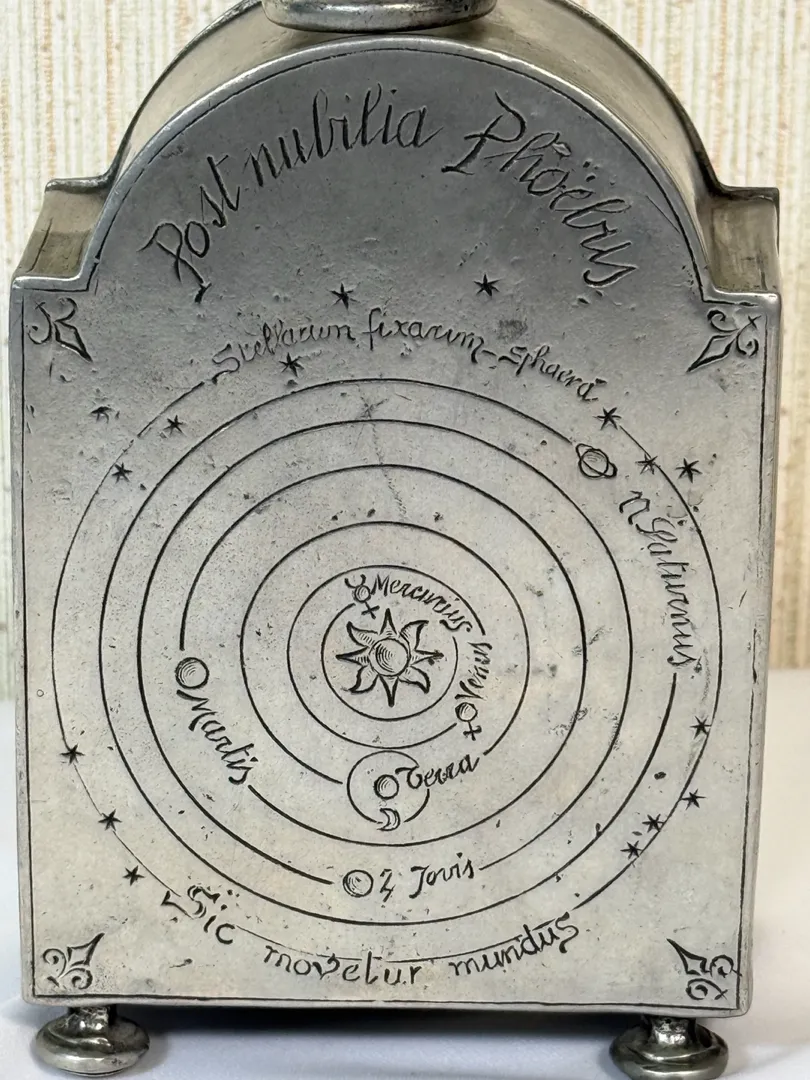 Post nubilia Phöebus
Stellarum fixarum sphaera
Saturnus
Mercurius
Venus
Martis
Terra
Jovis
Sic movetur mundus